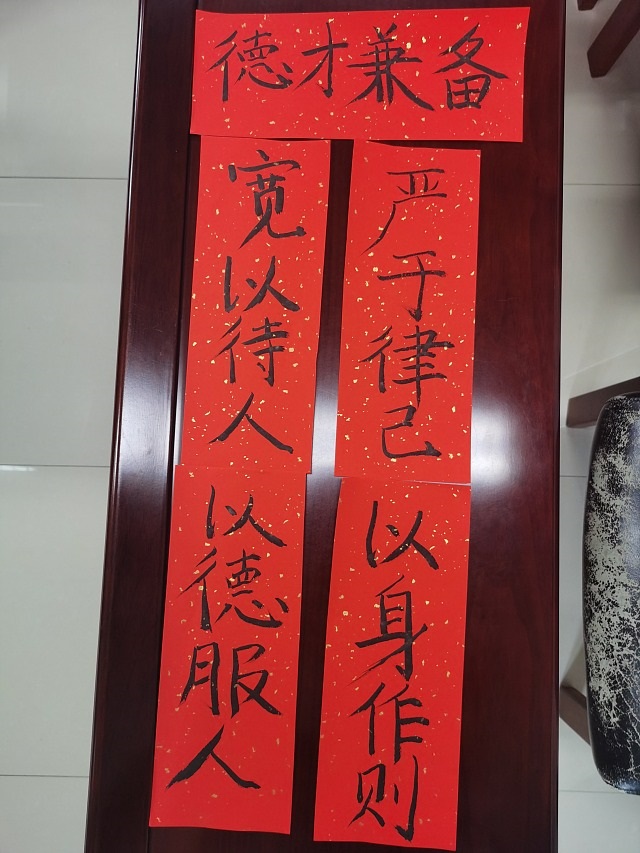 德才兼备
严于律己
以身作则
宽以待人
以德服人